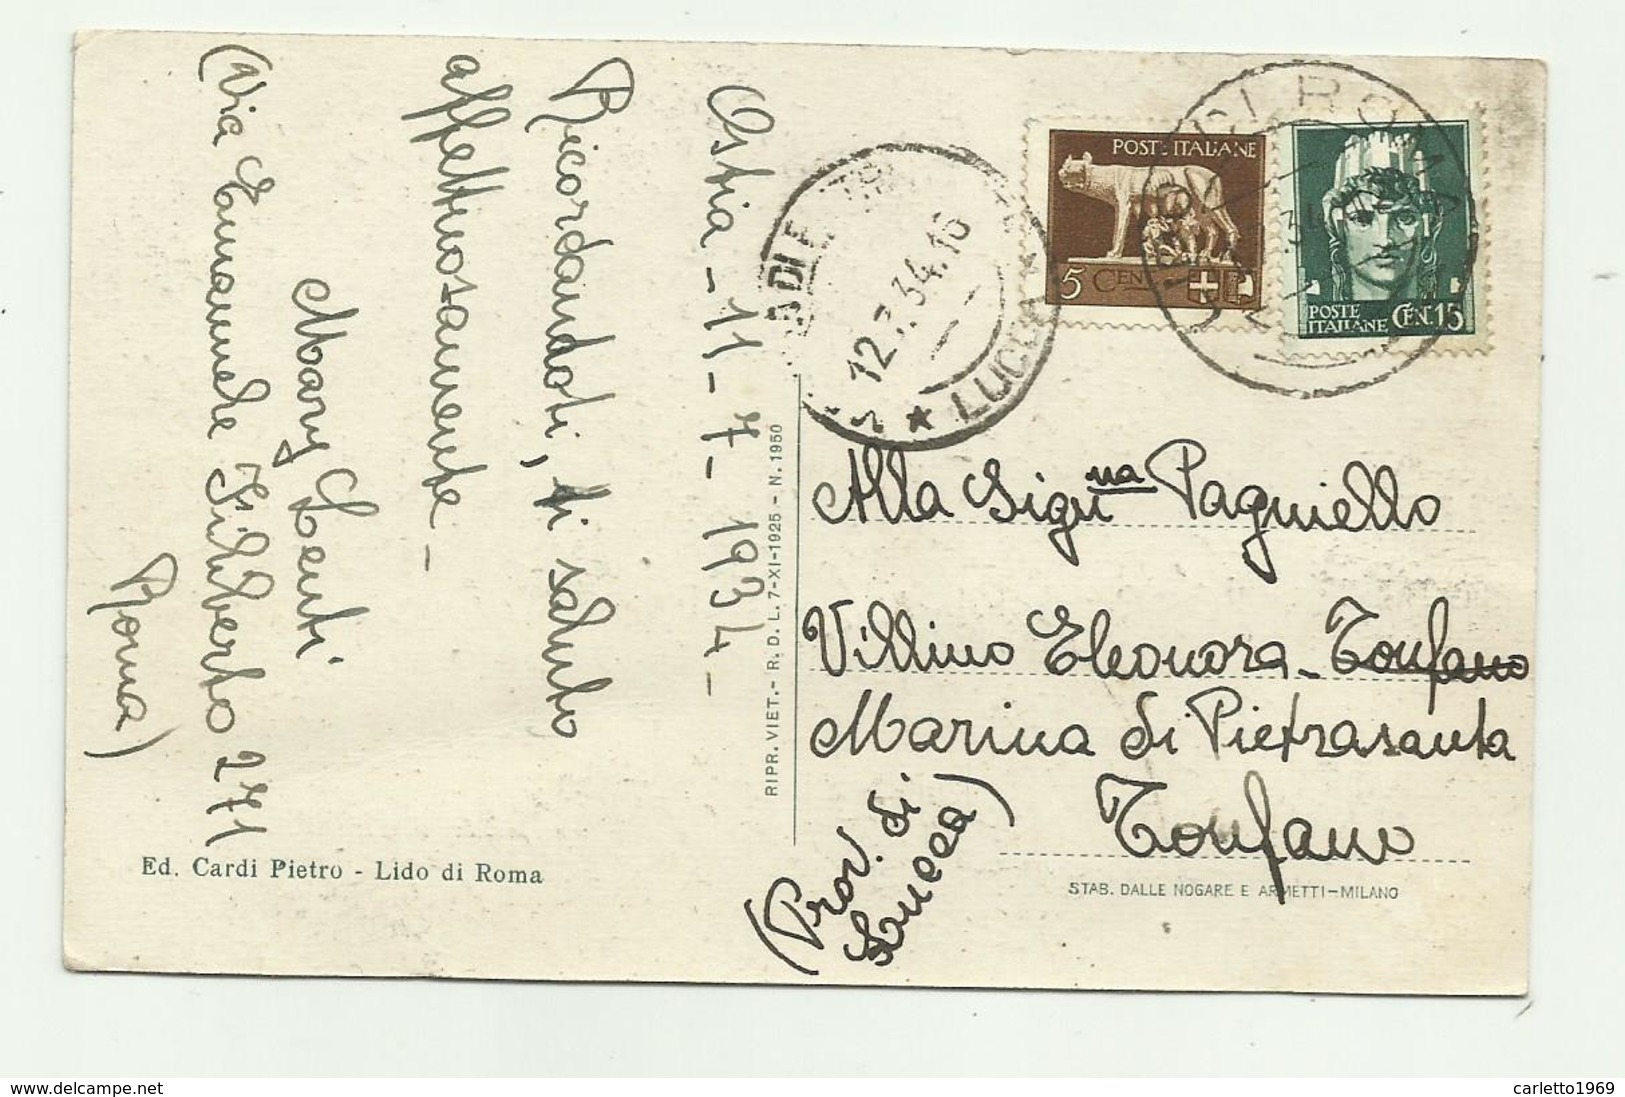 Ostia - 11 - 7 - 1934 -
Ricordandoti, ti saluto
affettuosamente -
Mary Lenti
(Via Emanuele Filiberto 271
Roma)
Ed. Cardi Pietro - Lido di Roma
RIPR. VIET. - R. D. L. 7-XI-1925 - N. 1950
12.7.34.16
★ LUCCA ★
DI ROMA
POSTE ITALIANE
5 CEN
POSTE
ITALIANE CEN.15
Alla Sigⁿᵃ Pagniello
Villino Eleonora - Tonfano
Marina di Pietrasanta
Tonfano
(Prov. di
Lucca)
STAB. DALLE NOGARE E ARMETTI-MILANO
carletto1969
www.delcampe.net